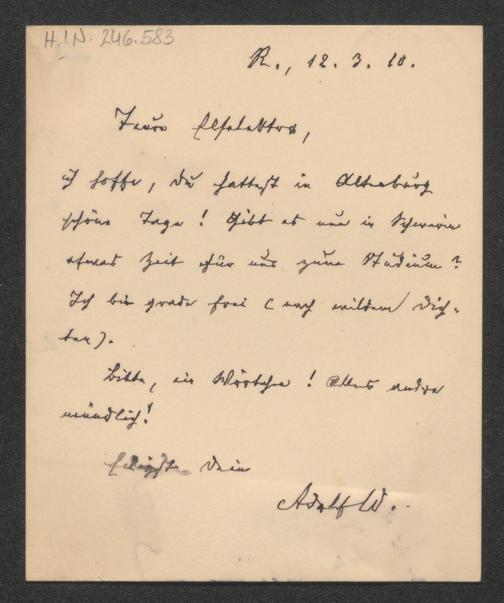 H.I.N. 246.583
R., 12. 3. 10.
Teure Elselektra,
ich hoffe, du hattest in Altenburg
schöne Tage! Gibt es nun in Schwerin
etwas Zeit für uns zum Studium?
Ich bin grade frei (nach wildem Dich-
ten).
Bitte, ein Wörtchen! Alles andre
mündlich!
Dein
Adolf W.